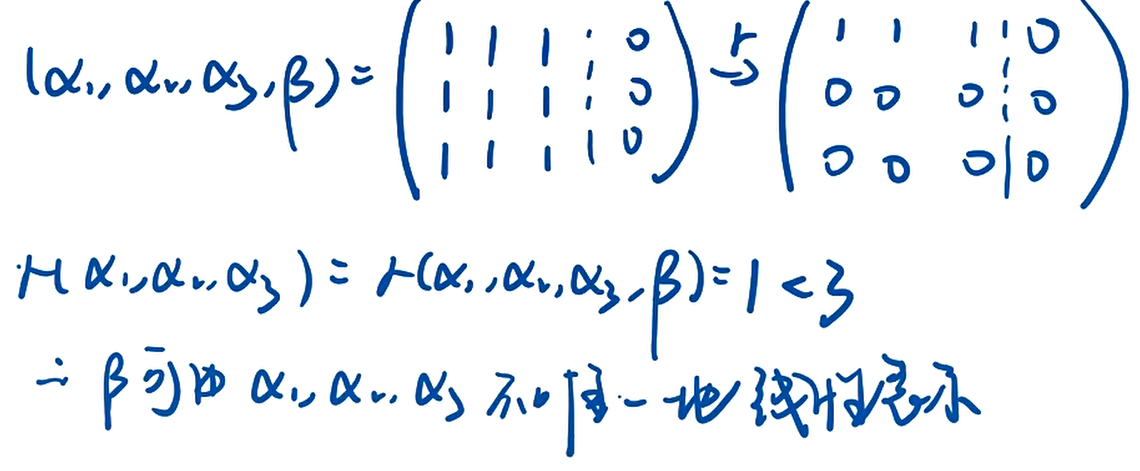 (α₁, α₂, α₃, β) = ( 1 1 1 ⋮ 0 ) r→ ( 1 1 1 ⋮ 0 )
( 1 1 1 ⋮ 0 ) ( 0 0 0 ⋮ 0 )
( 1 1 1 | 0 ) ( 0 0 0 | 0 )
r(α₁, α₂, α₃) = r(α₁, α₂, α₃, β) = 1 < 3
∴ β可由 α₁, α₂, α₃ 不唯一地线性表示